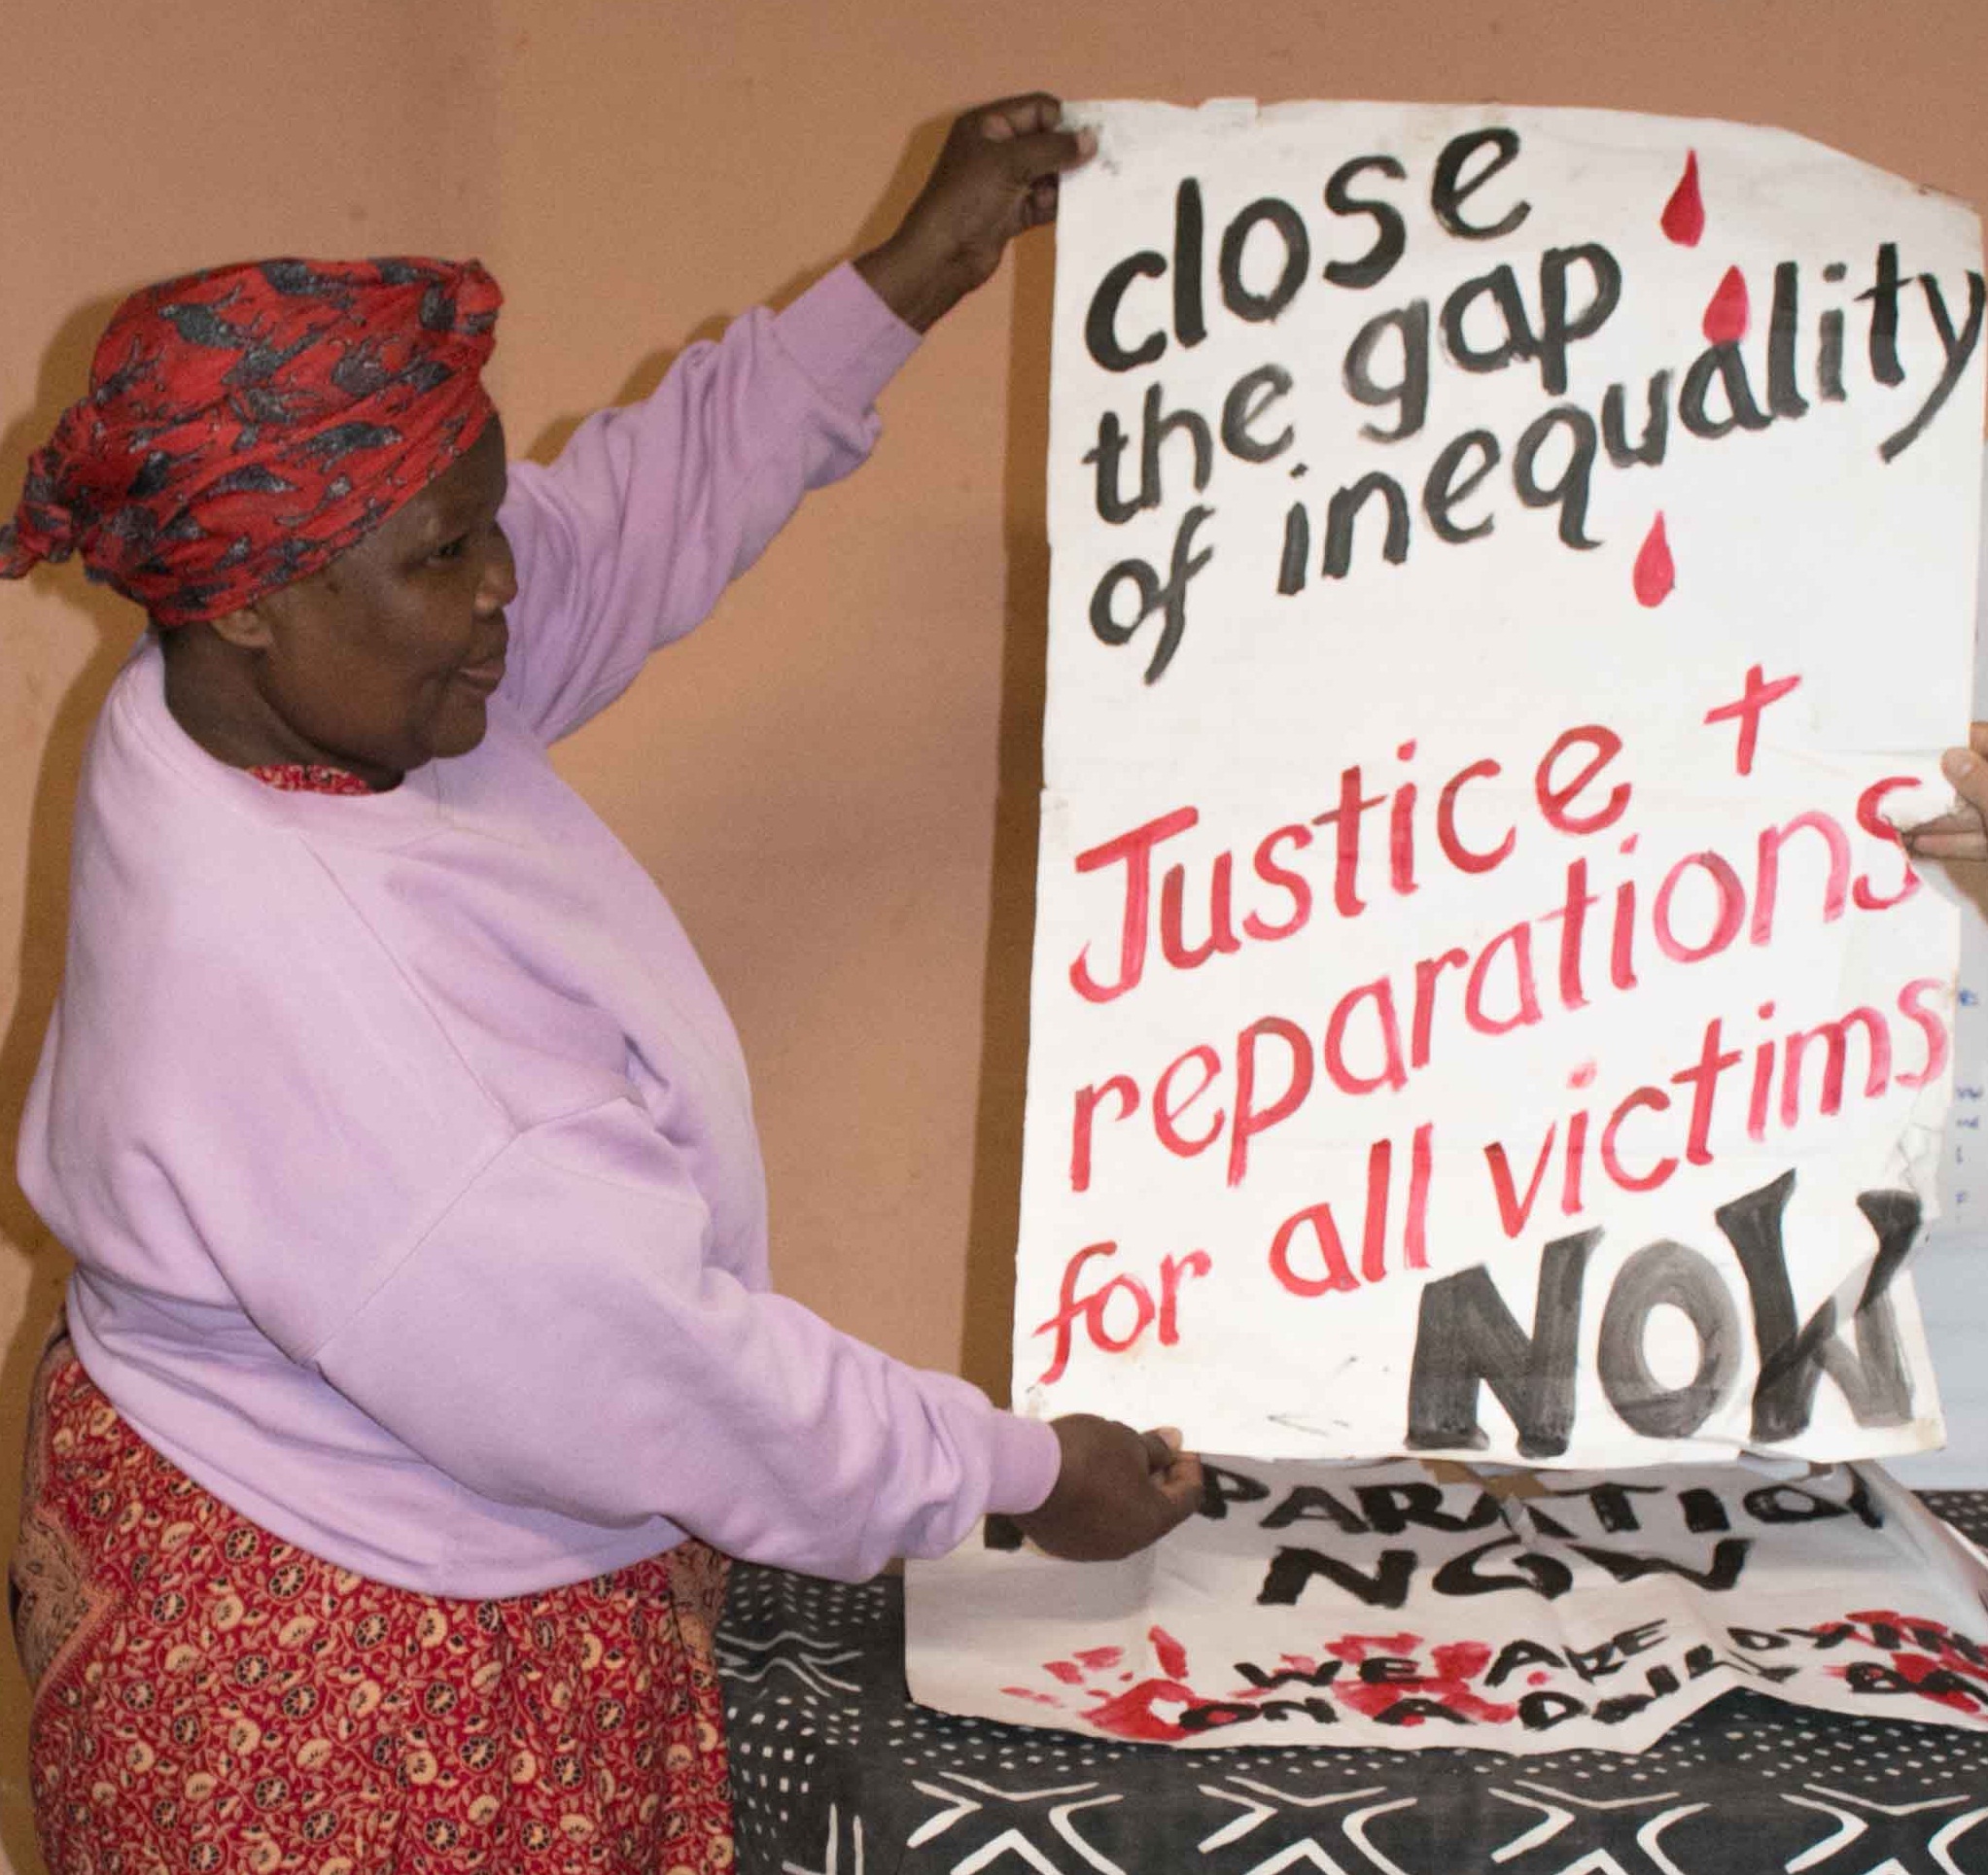 close
the gap
of inequality
Justice +
reparations
for all victims
NOW
PARATIO
NOW
WE ARE DYING
ON A DAILY BA